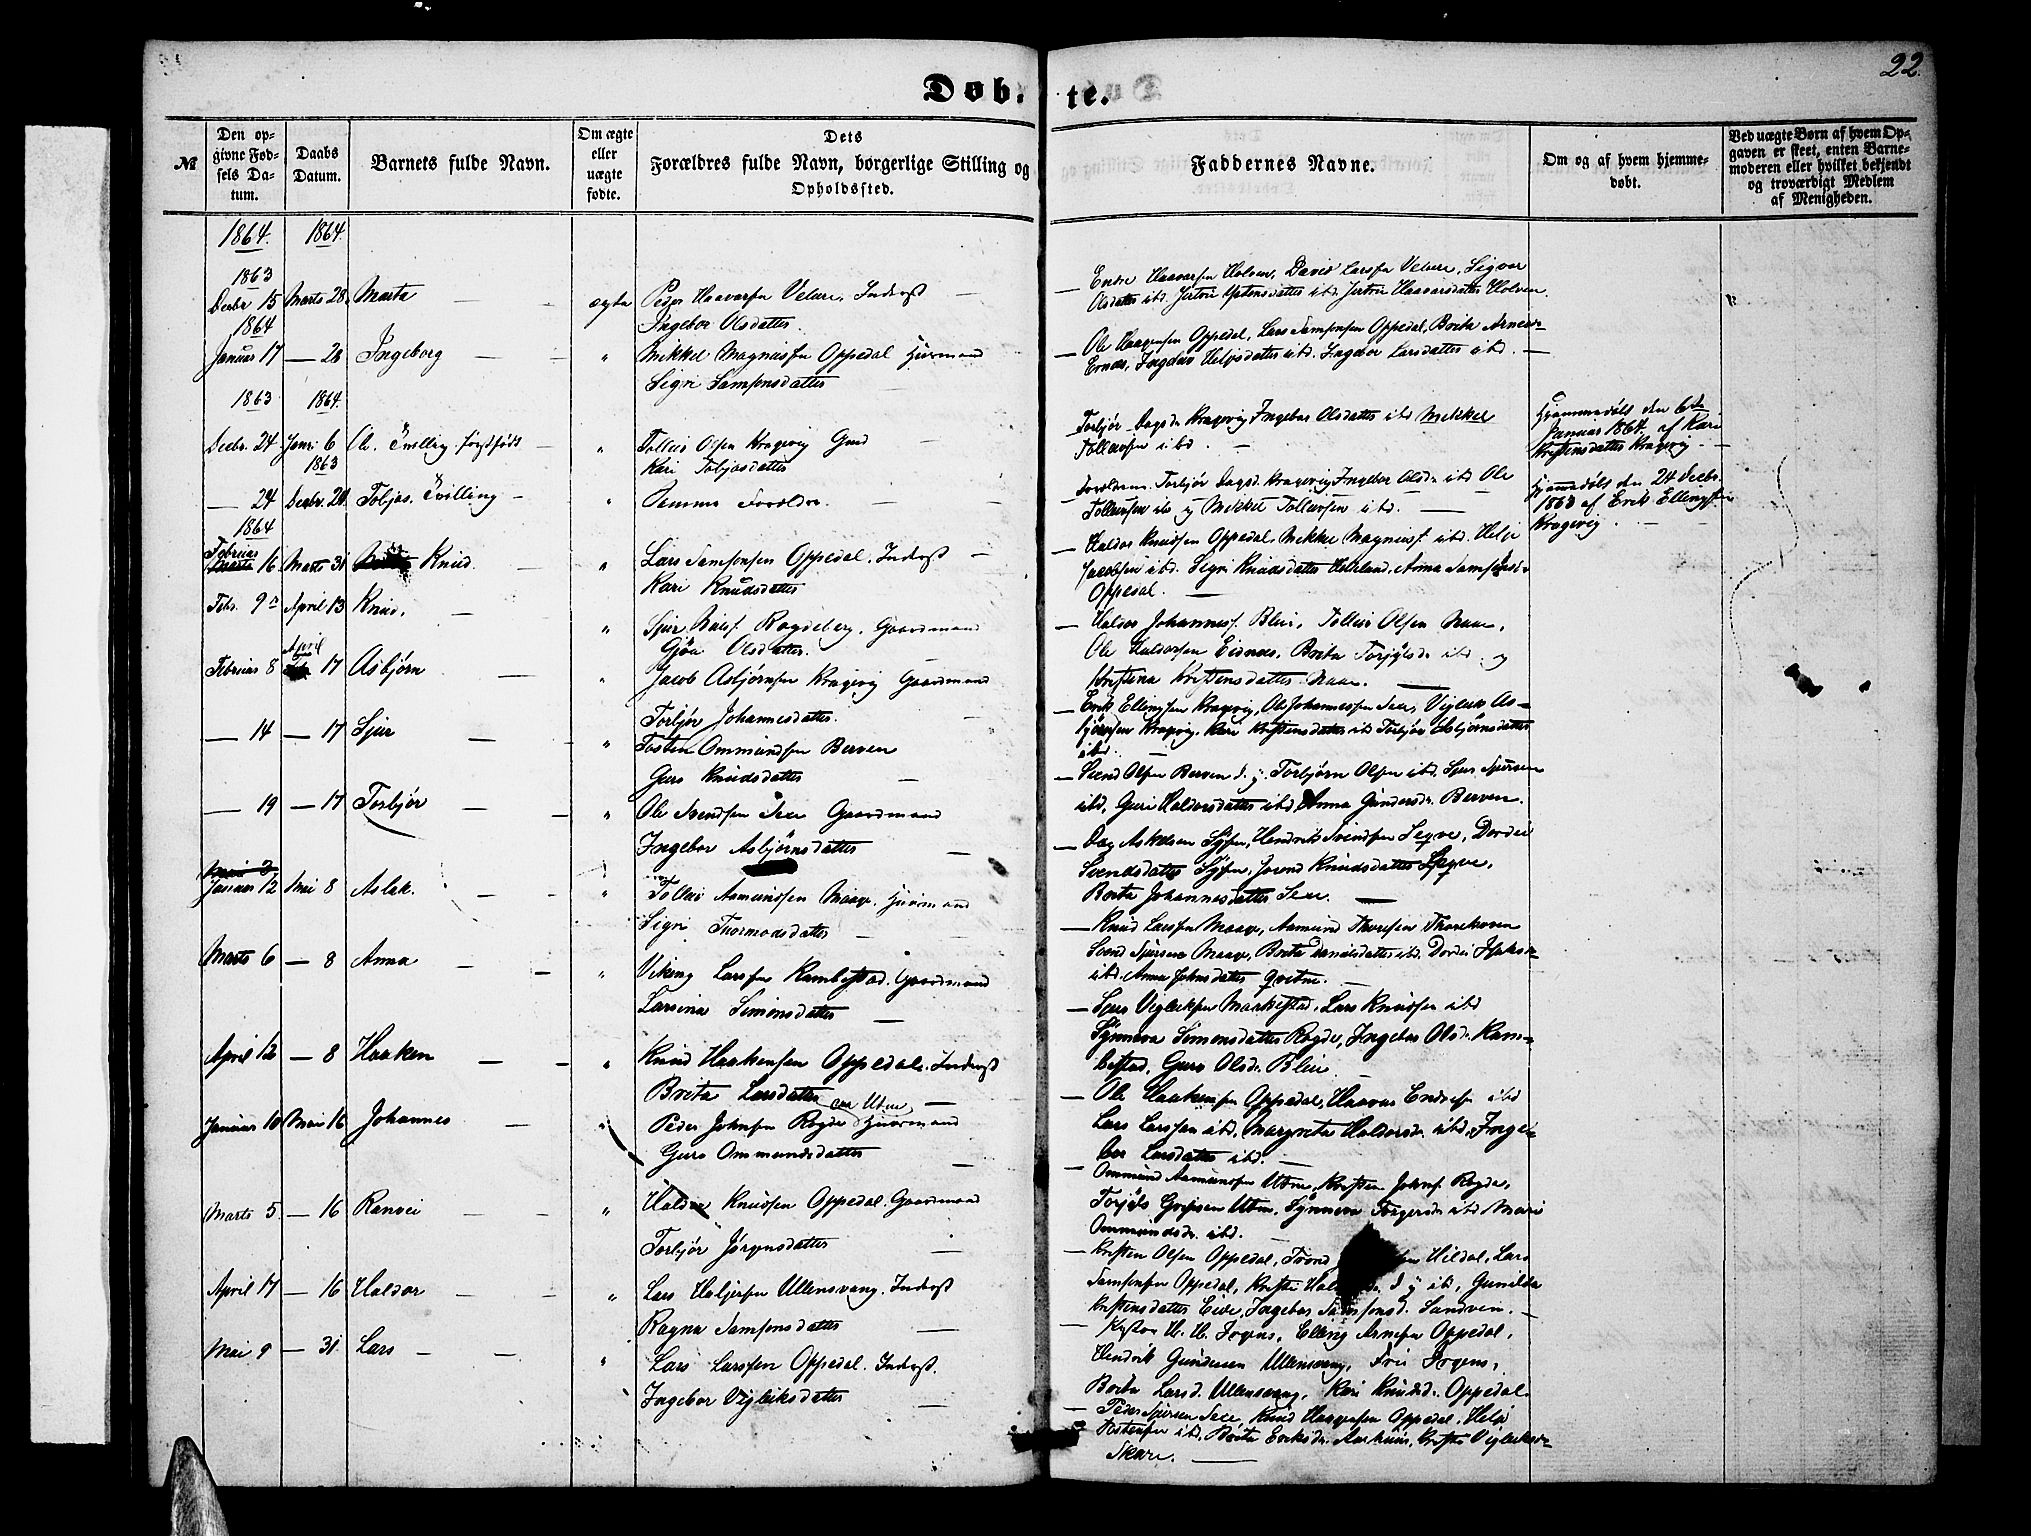 22.
Døbte.
№
Den opgivne Fødsels Datum.
Daabs Datum.
Barnets fulde Navn.
Om ægte eller uægte fødte.
Dets Forældres fulde Navn, borgerlige Stilling og Opholdssted.
Faddernes Navne.
Om og af hvem hjemmedøbt.
Ved uægte Børn af hvem Opgaven er skeet, enten Barnemoderen eller hvilket bekjendt og troværdigt Medlem af Menigheden.
1864. 1864.
1863
Decbr 15 Marts 28. Marta — ægte Peder Haavarsen Velure, Inderst —
Ingebor Olsdatter.
— Endre Haavarsen Holven, David Larsen Velure, Sigvor
Olsdatter ibd. Jertrü ibd. Jertrü Haavarsdatter Holven.
1864
Januar 17 — 28 Ingeborg — — " Mikkel Magnusen Oppedal Huusmand
Sigri Samsonsdatter
— Ole Haagensen Oppedal, Lars Samsonsen Oppedal, Brita
Ernes, Heljesdatter ibd. Ingebor Larsdatter ibd. —
1863 1864.
Decbr. 24 Janr. 6 Ole. Tvilling førstfødt — " Tolleiv Olsen Kragevig Gmd —
Kari Tobjasdatter
— Torbjør Dagsdr Kragevig Ingebor Olsdatter ibd Mikkel
Tolleivsen ibd. —
Hjemmedøbt den 6te
Januar 1864. af Kari
Kristensdatter Kragevig. —
1863
— 24 Decbr. 24 Tobjas. Tvilling — " Samme Forældre. —
— Forældrene. Torbjør Dagsd. Kragevig Ingebor Olsdr. ibd Ole
Tolleivsen ib og Mikkel Tolleivsen ibd. —
Hjemmedøbt den 24 Decbr.
1863 af Erik Ellingsen
Kragevig. —
1864
Februar
Marts 16 Marts 31 Knud. — " Lars Samsonsen Oppedal. Inderst —
Kari Knudsdatter
— Haldor Knudsen Oppedal, Mikkel Magnusf. ibd. Helje
Jacobsen ibd. Sigri Knudsdatter Helleland, Anna Samsonsd.
Oppedal. —
Febr. 9 April 13 Knud. — " Sjur Ragdeberg. Gaardmand
Gjøa Olsdatter.
— Haldor Johannesf. Bleie, Tolleiv Olsen Naae,
Ole Haldorsen Eidnes, Brita Torjølsdr ibd. og
Kristina Kristensdatter Naae. —
April
Februar 8 17 Asbjørn — " Jacob Asbjørnsen Kragevig Gaardmand
Torbjør Johannesdatter.
— Erik Ellingsen Kragevig, Ole Johannessen Sexe, Vigleik As-
bjørnsen Kragevig, Kari Kristensdatter ib Torbjør Asbjørnsdatter
ibd. —
— 14 — 17 Sjur — " Tosten Ommundsen Berven
Guro Knudsdatter —
— Svend Olsen Berven d. y. Torbjørn Olsen ibd. Sjur Sjursen
ibd, Guri Haldorsdatter ibd, Anna Gundersdr. Berven.
— 19 — 17 Torbjør — — " Ole Svendsen Sexe Gaardmand
Ingebor Asbjørnsdatter —
— Dag Askelsen Sysen, Hendrik Svendsen Seqve, Dordei
Svendsdatter Sysen, Jorend Knudsdatter Seqve,
Brita Johannesdatter Sexe. —
Januar 12 Mai 8 Aslak. — " Tolleiv Asmundsen Maage. Huusmand
Sigri Thormodsdatter —
— Knud Larsen Maage, Aamund
Svend Sjursen Maage, Brita Danielsdatter ibd. Dordei
ibd. Anna Johnsdatter Qvitne. —
Marts 6 — 8 Anna — — " Viking Larsen Rambestad. Gaardmand
Larsina Simonsdatter —
— Sjur Vigleiksen Maakestad, Lars Knudsen ibd
Synneva Simonsdatter Rogde, Ingebor Olsdr. Ram-
bestad, Guro Olsdr. Bleie —
April 12 — 8 Haaken — — " Knud Haakensen Oppedal. Inderst
Brita Larsdatter —
— Ole Haakensen Oppedal, Haavar Endresen ibd
Lars Larssen ibd, Margreta Haldorsdr. ibd, Inge-
bor Larsdatter ibd. —
Januar 10 Mai 16 Johannes — " Peder Johnsen Rogde Huusmand
Guro Ommundsdatter —
— Ommund Aamundsen Utne, Kristen Johnsf. Rogde,
Torjüls Utne, Synneva Torgersdr ibd Mari
Ommundsdr. ibd. —
Marts 5. — 16 Ranvei — — " Haldor Knudsen Oppedal. Gaardmand
Torbjør Jørgensdatter —
— Kristen Olsen Oppedal, Trond Hildal, Lars
Samsonsen Oppedal, d y ib, Gunilda
Kristensdatter Eide, Ingebor Samsonsd. Sandven. —
April 17 — 16 Haldor — — " Lars Heljesen Ullensvang. Inderst
Ragna Samsonsdatter —
— H. H. Elling Arnesen Oppedal,
Hendrik Gundersen Ullensvang,
Brita Larsd. Ullensvang, Kari Knudsd. Oppedal.
Mai 9 — 31. Lars — — " Lars Larssen Oppedal. Inderst.
Ingebor Vigleiksdatter —
— Peder Sjursen Sexe, Knud Haagensen Oppedal, Helje
Tostensen ibd, Brita Eriksdr. Vigleiksdr
Skare. —